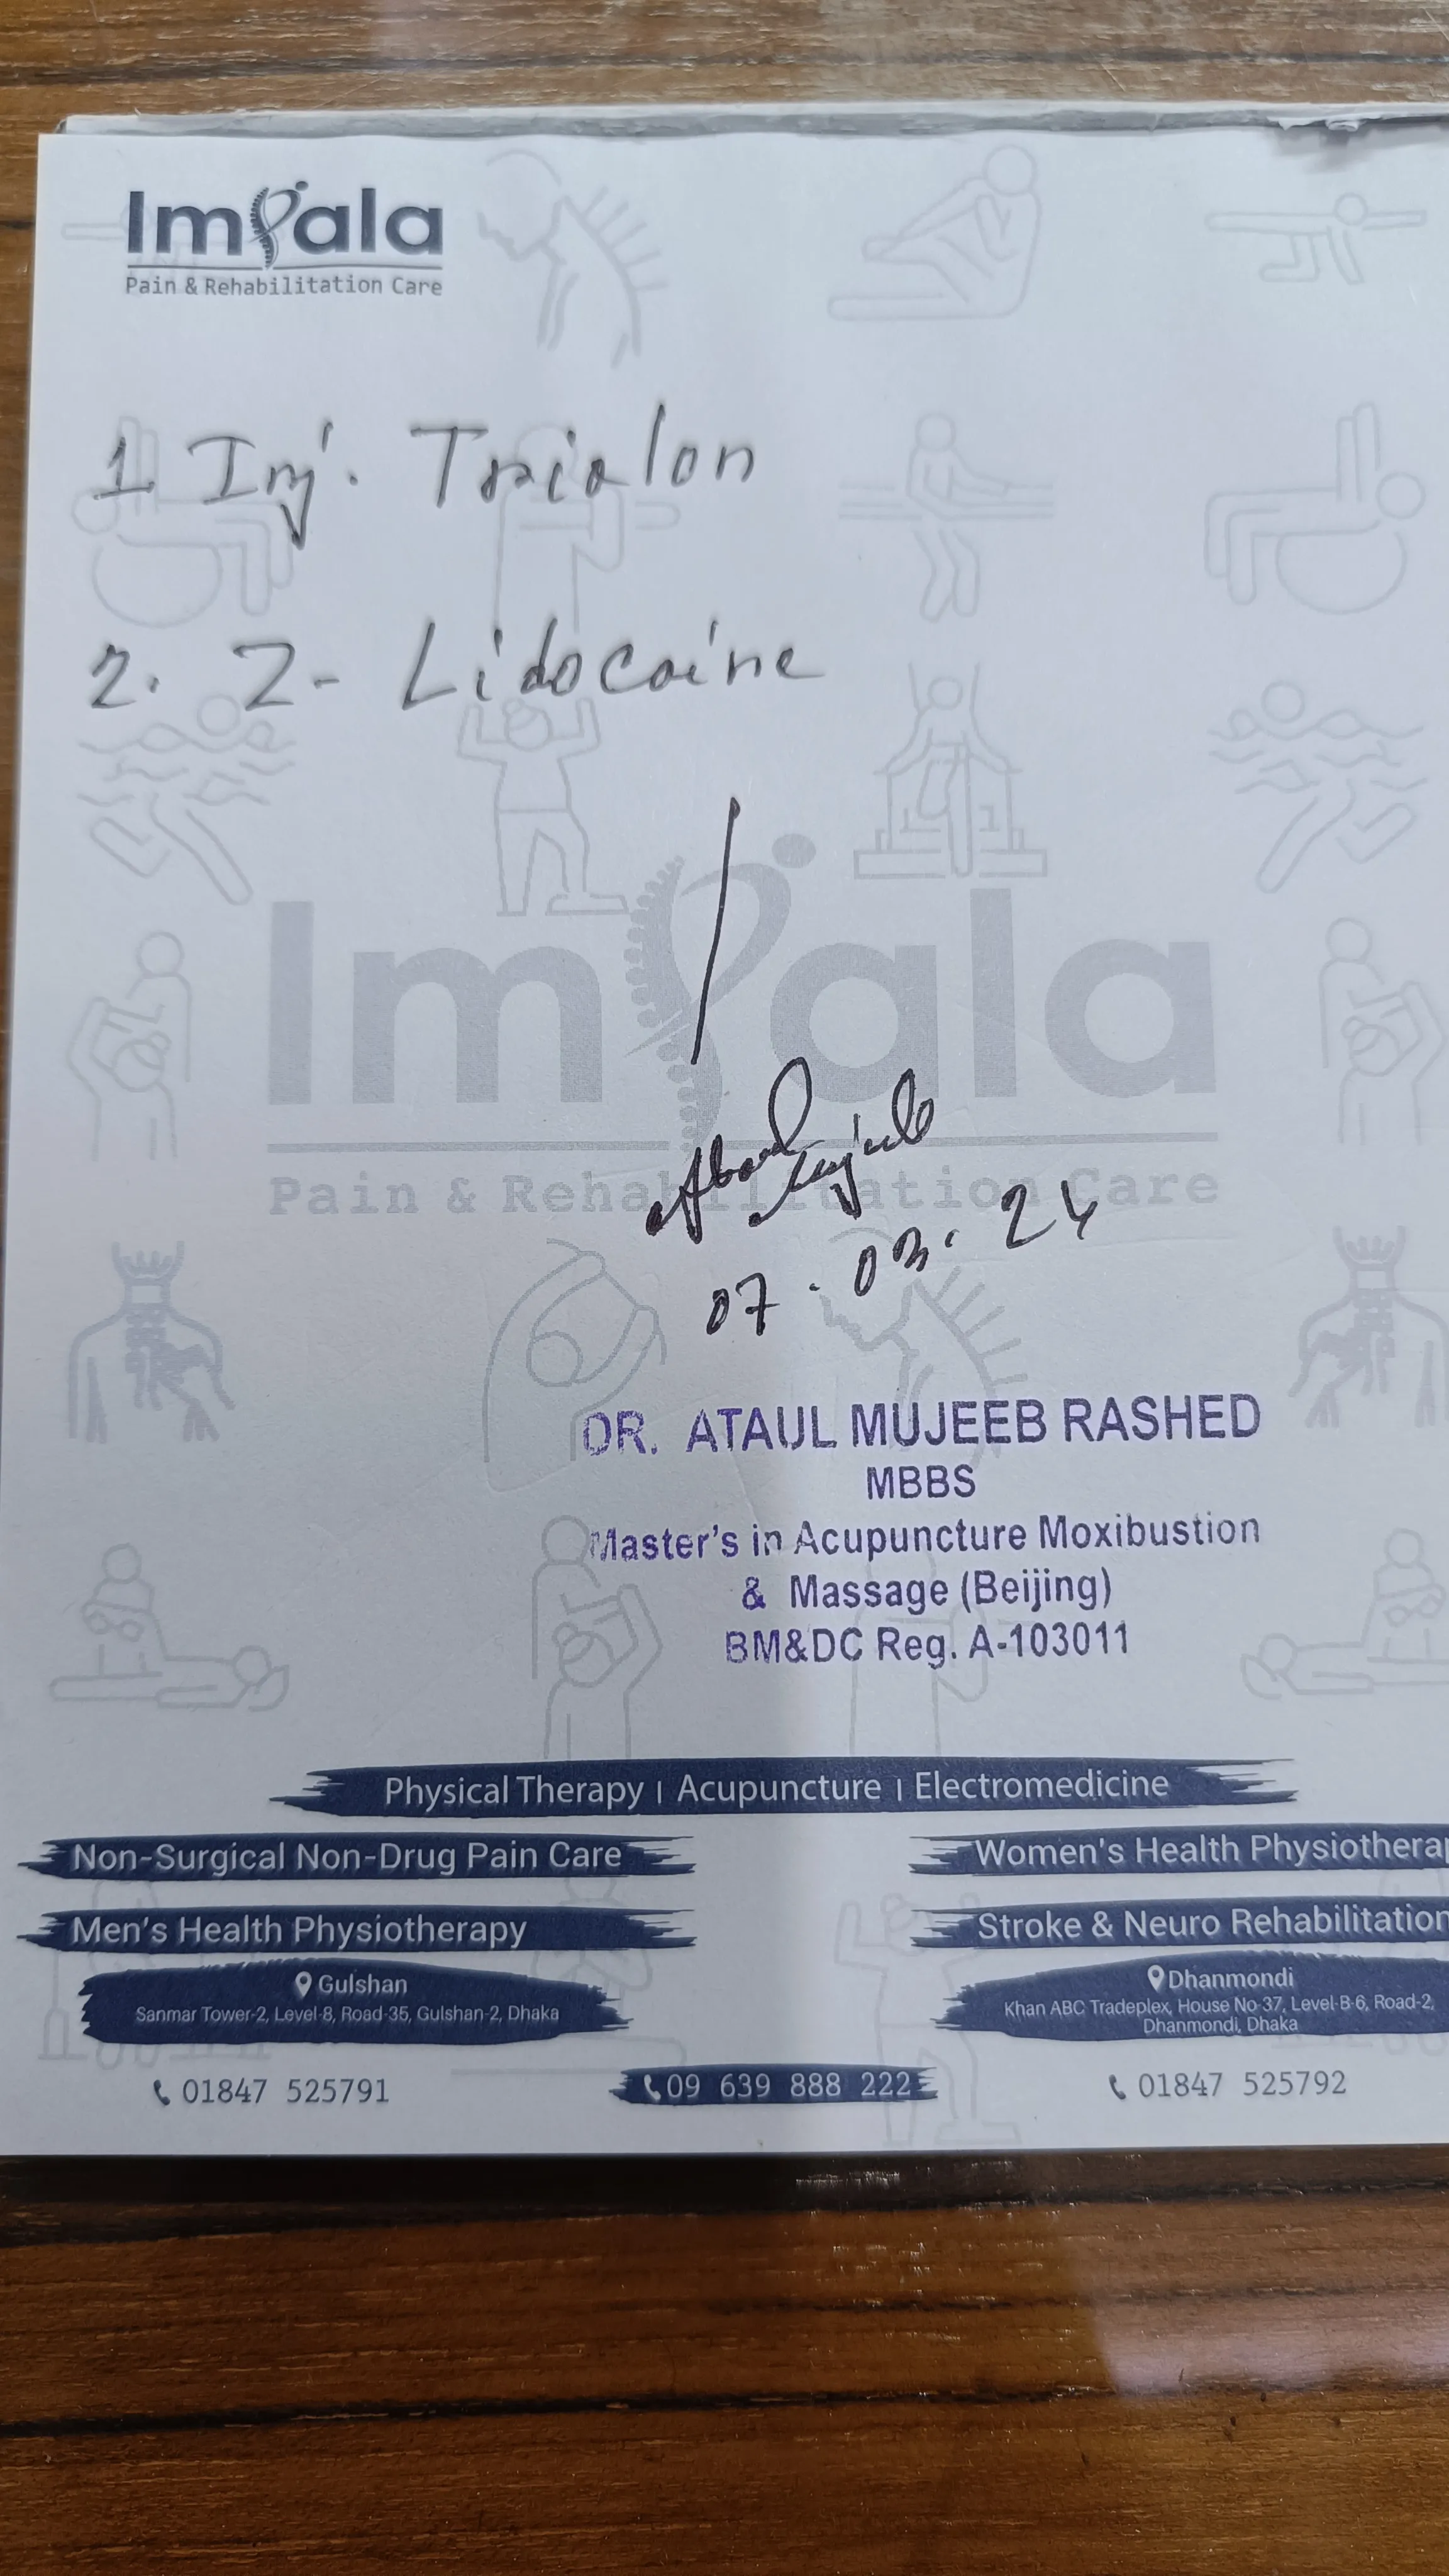 Impala
Pain & Rehabilitation Care
1. Inj. Trialon
2. Z- Lidocaine
Impala
Pain & Rehabilitation Care
07.03.24
DR. ATAUL MUJEEB RASHED
MBBS
Master's in Acupuncture Moxibustion
& Massage (Beijing)
BM&DC Reg. A-103011
Physical Therapy | Acupuncture | Electromedicine
Non-Surgical Non-Drug Pain Care
Women's Health Physiothera
Men's Health Physiotherapy
Stroke & Neuro Rehabilitation
Gulshan
Sanmar Tower-2, Level-8, Road-35, Gulshan-2, Dhaka
Dhanmondi
Khan ABC Tradeplex, House No-37, Level-B-6, Road-2,
Dhanmondi, Dhaka
01847 525791
09 639 888 222
01847 525792